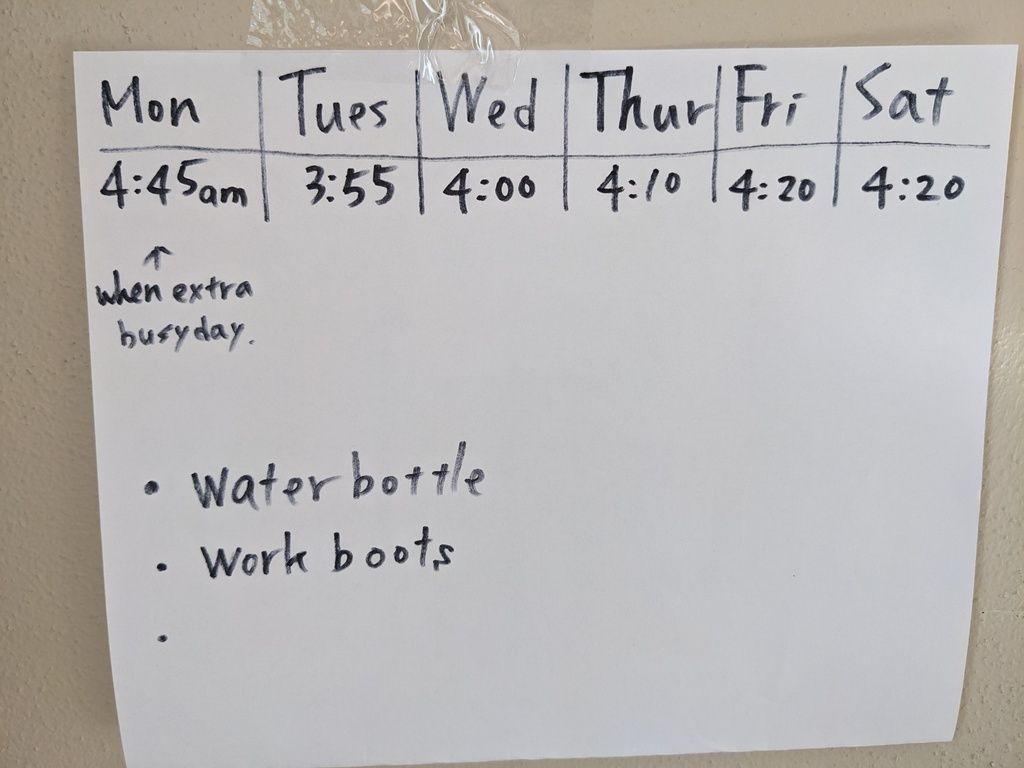 Mon Tues Wed Thur Fri Sat
4:45am 3:55 4:00 4:10 4:20 4:20
↑
when extra
busy day.
• Water bottle
• Work boots
•